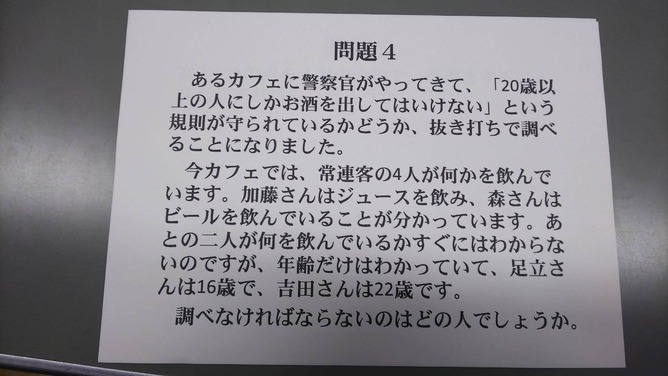 問題４
あるカフェに警察官がやってきて、「20歳以
上の人にしかお酒を出してはいけない」という
規則が守られているかどうか、抜き打ちで調べ
ることになりました。
今カフェでは、常連客の4人が何かを飲んで
います。加藤さんはジュースを飲み、森さんは
ビールを飲んでいることが分かっています。あ
との二人が何を飲んでいるかすぐにはわからな
いのですが、年齢だけはわかっていて、足立さ
んは16歳で、吉田さんは22歳です。
調べなければならないのはどの人でしょうか。